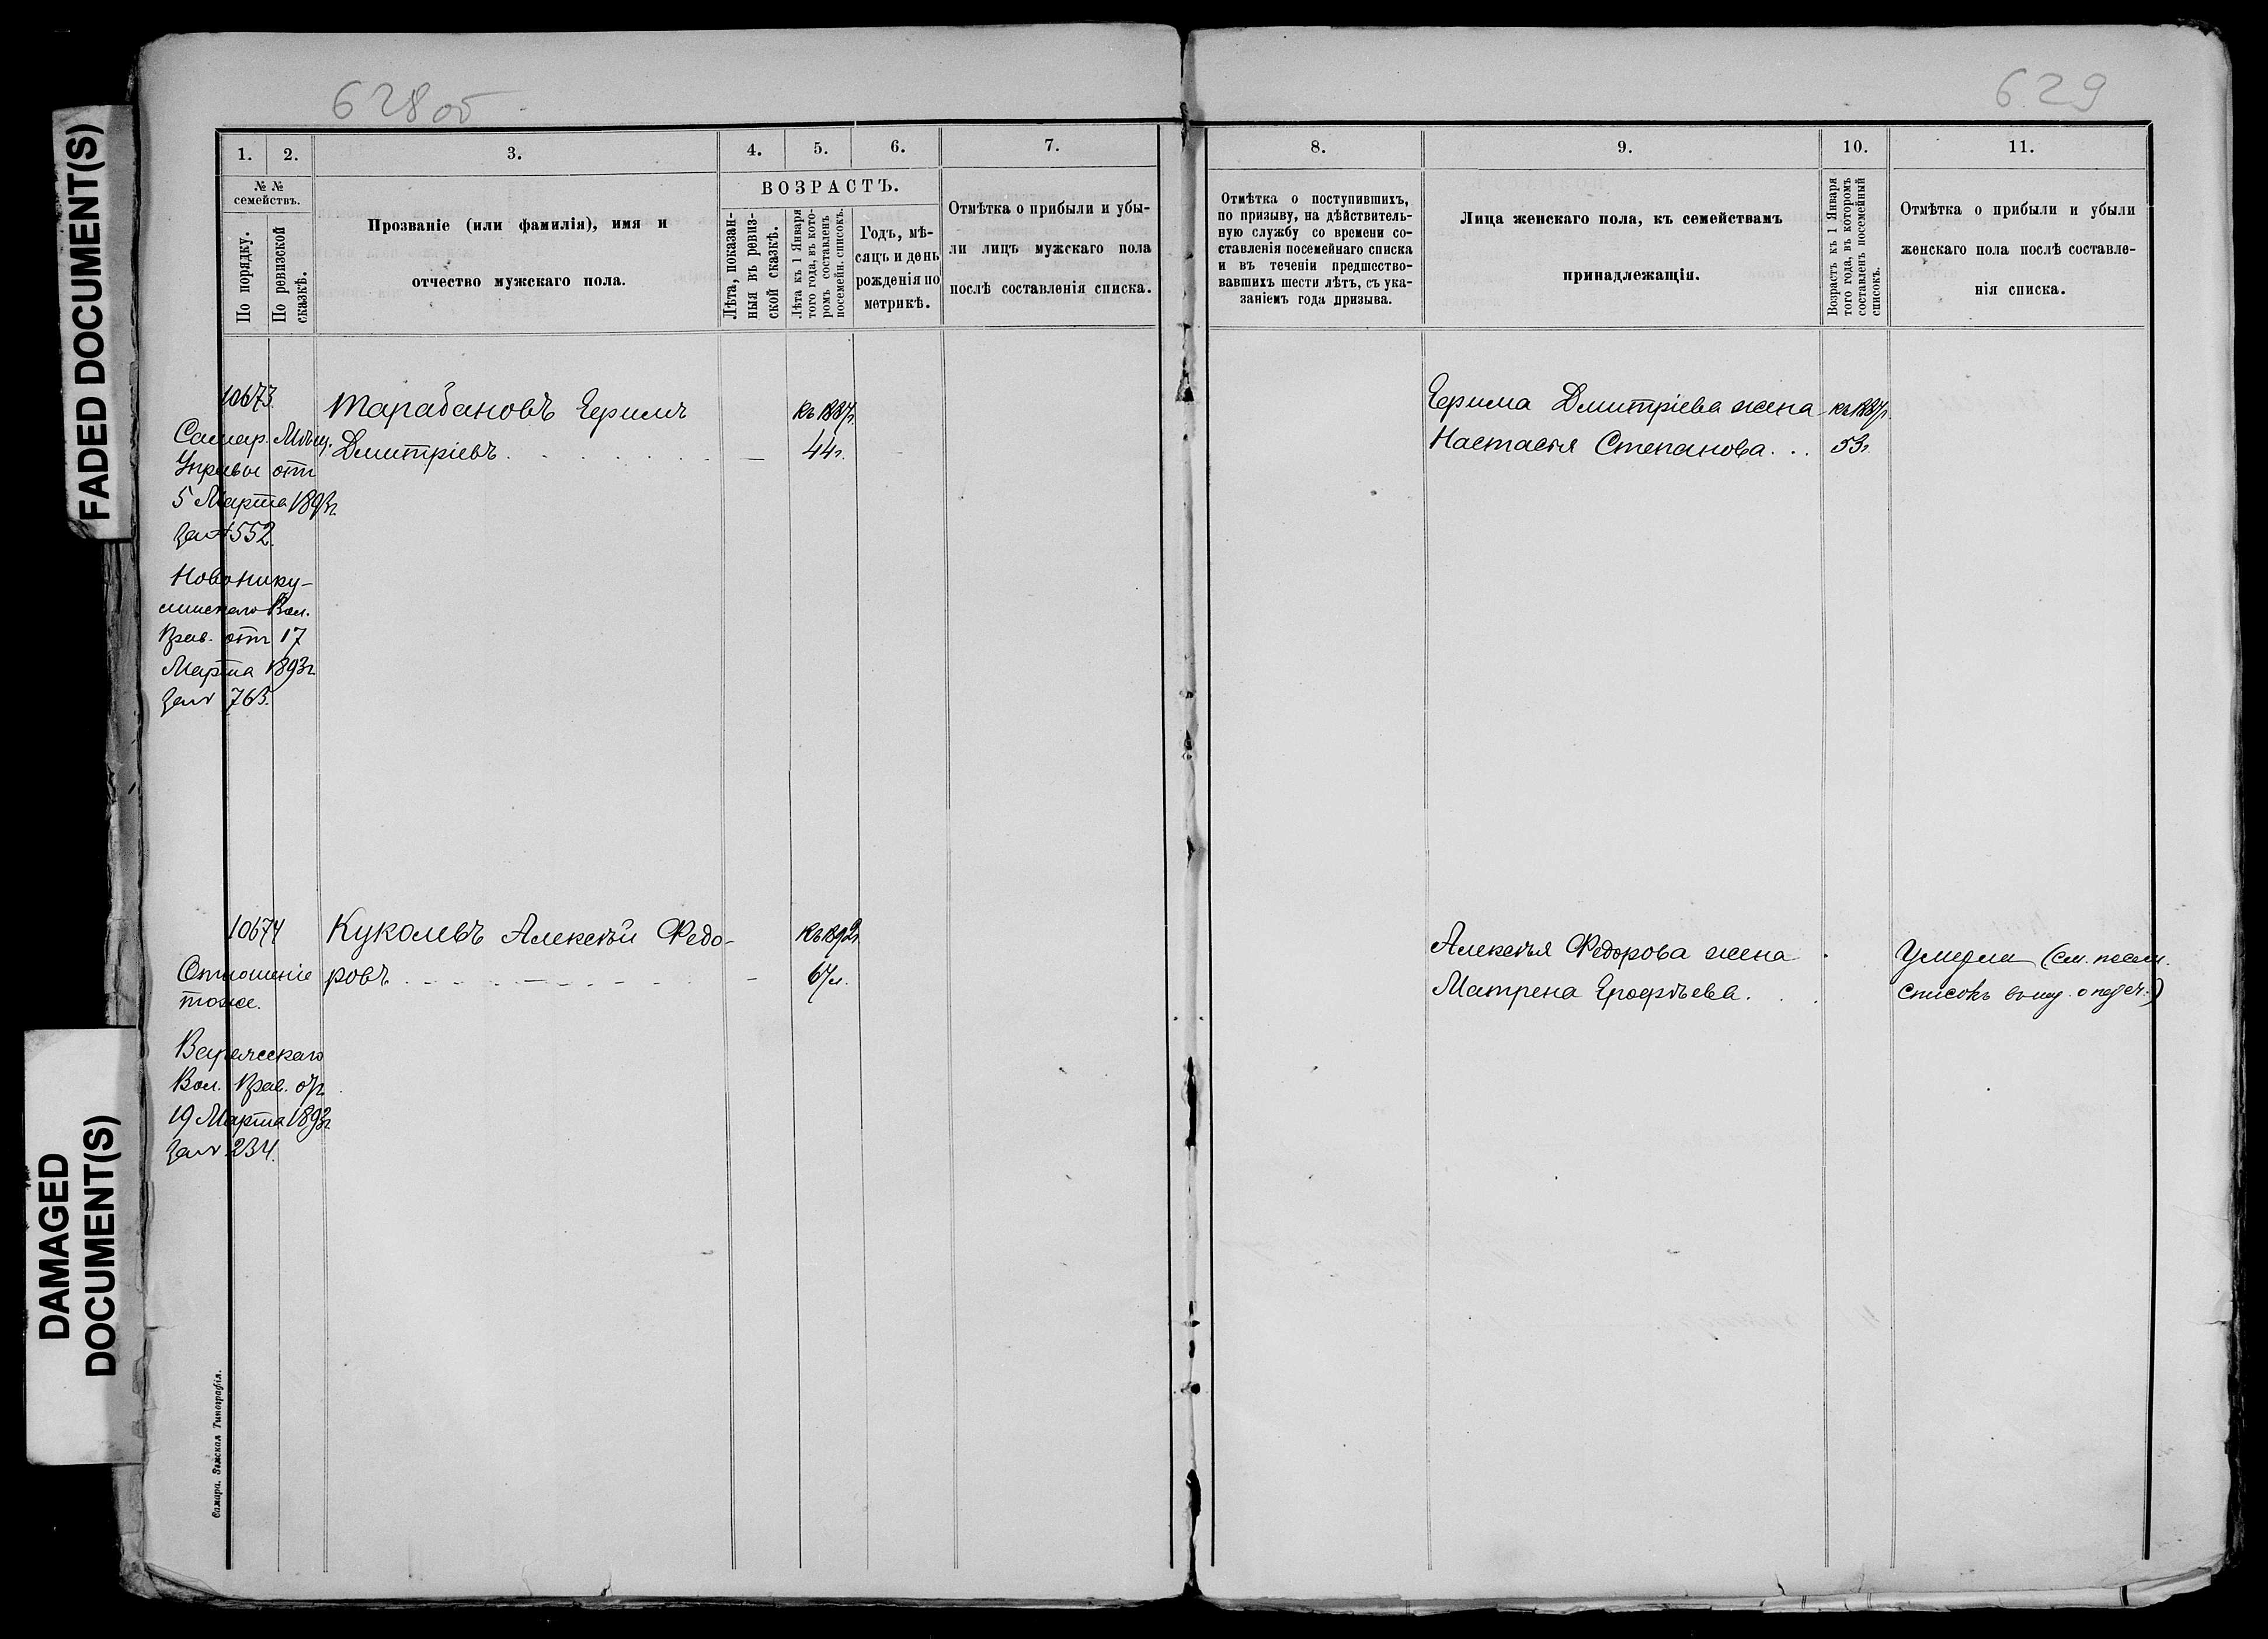 FADED DOCUMENT(S)
DAMAGED
DOCUMENT(S)
628 об
1. 2. 3. 4. 5. 6. 7.
№ №
семействъ.
По порядку.
По ревизской
сказкѣ.
Прозваніе (или фамилія), имя и
отчество мужскаго пола.
ВОЗРАСТЪ.
Лѣта, показан-
ныя въ ревиз-
ской сказкѣ.
Лѣта къ 1 Января
того года, въ кото-
ромъ составленъ
посемейн. списокъ.
Годъ, мѣ-
сяцъ и день
рожденія по
метрикѣ.
Отмѣтка о прибыли и убы-
ли лицъ мужскаго пола
послѣ составленія списка.
10673.
Самар. Мѣщ.
Управы отъ
5 Марта 1893г.
за № 552.
Новонику-
линскаго Вол.
Прав. отъ 17
Марта 1893г.
за № 765.
Тарабановъ Ефимъ
Дмитріевъ . . . . . . . —
къ 1887г.
44г.
10674
Отношеніе
тоже.
Вол. Прав. отъ
19 Марта 1893г.
за № 234.
Куколевъ Алексѣй Федо-
ровъ . . . . . . . . . —
къ 1892г.
67л.
Самара. Земская Типографія.
629
8. 9. 10. 11.
Отмѣтка о поступившихъ,
по призыву, на дѣйствитель-
ную службу со времени со-
ставленія посемейнаго списка
и въ теченіи предшество-
вавшихъ шести лѣтъ, съ ука-
заніемъ года призыва.
Лица женскаго пола, къ семействамъ
принадлежащія.
Возрастъ къ 1 Января
того года, въ которомъ
составленъ посемейный
списокъ.
Отмѣтка о прибыли и убыли
женскаго пола послѣ составле-
нія списка.
Ефима Дмитріева жена
Настасья Степанова . . .
къ 1887г.
53г.
Алексѣя Федорова жена .
Матрена Ерофѣева . . .
Умерла (см. посем.
списокъ